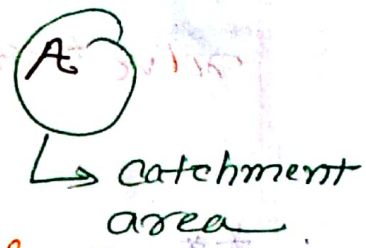 A
catchment
area